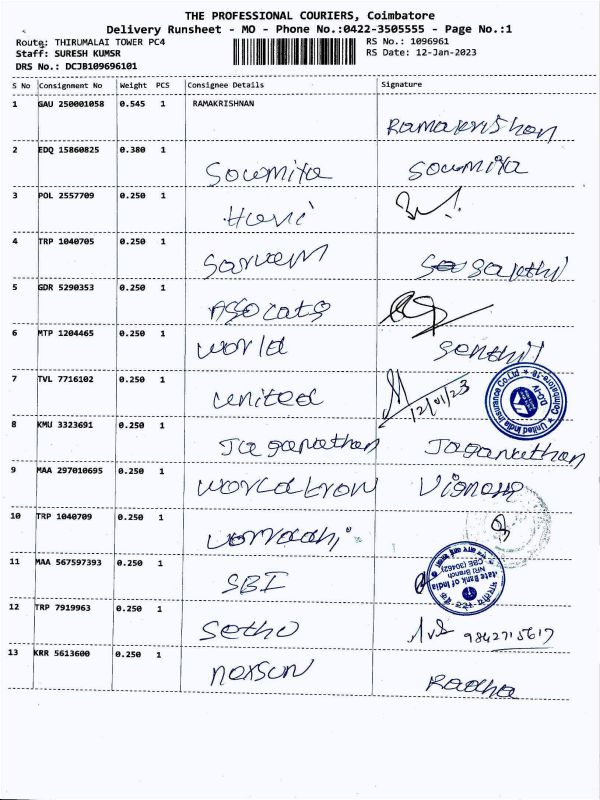 THE PROFESSIONAL COURIERS, Coimbatore
Delivery Runsheet - MO - Phone No.:0422-3505555 - Page No.:1
Route: THIRUMALAI TOWER PC4
RS No.: 1096961
Staff: SURESH KUMSR
RS Date: 12-Jan-2023
DRS No.: DCJB109696101
S No Consignment No Weight PCS Consignee Details Signature
1 GAU 250001058 0.545 1 RAMAKRISHNAN Ramakrishan
2 EDQ 15860825 0.380 1 Soumiya Soumiya
3 POL 2557709 0.250 1
4 TRP 1040705 0.250 1 Sarvam Sakthi
5 GDR 5290353 0.250 1
6 MTP 1204465 0.250 1 World Senthil
7 TVL 7716102 0.250 1 United 12/01/23
United India Insurance Co.Ltd
8 KMU 3323691 0.250 1 Jaganathan Jaganathan
9 MAA 297010695 0.250 1
10 TRP 1040709 0.250 1
11 MAA 567597393 0.250 1 SBI
State Bank of India
NRI Branch
CBE (30462)
12 TRP 7919963 0.250 1 Sethu 9842715617
13 KRR 5613600 0.250 1 Radha